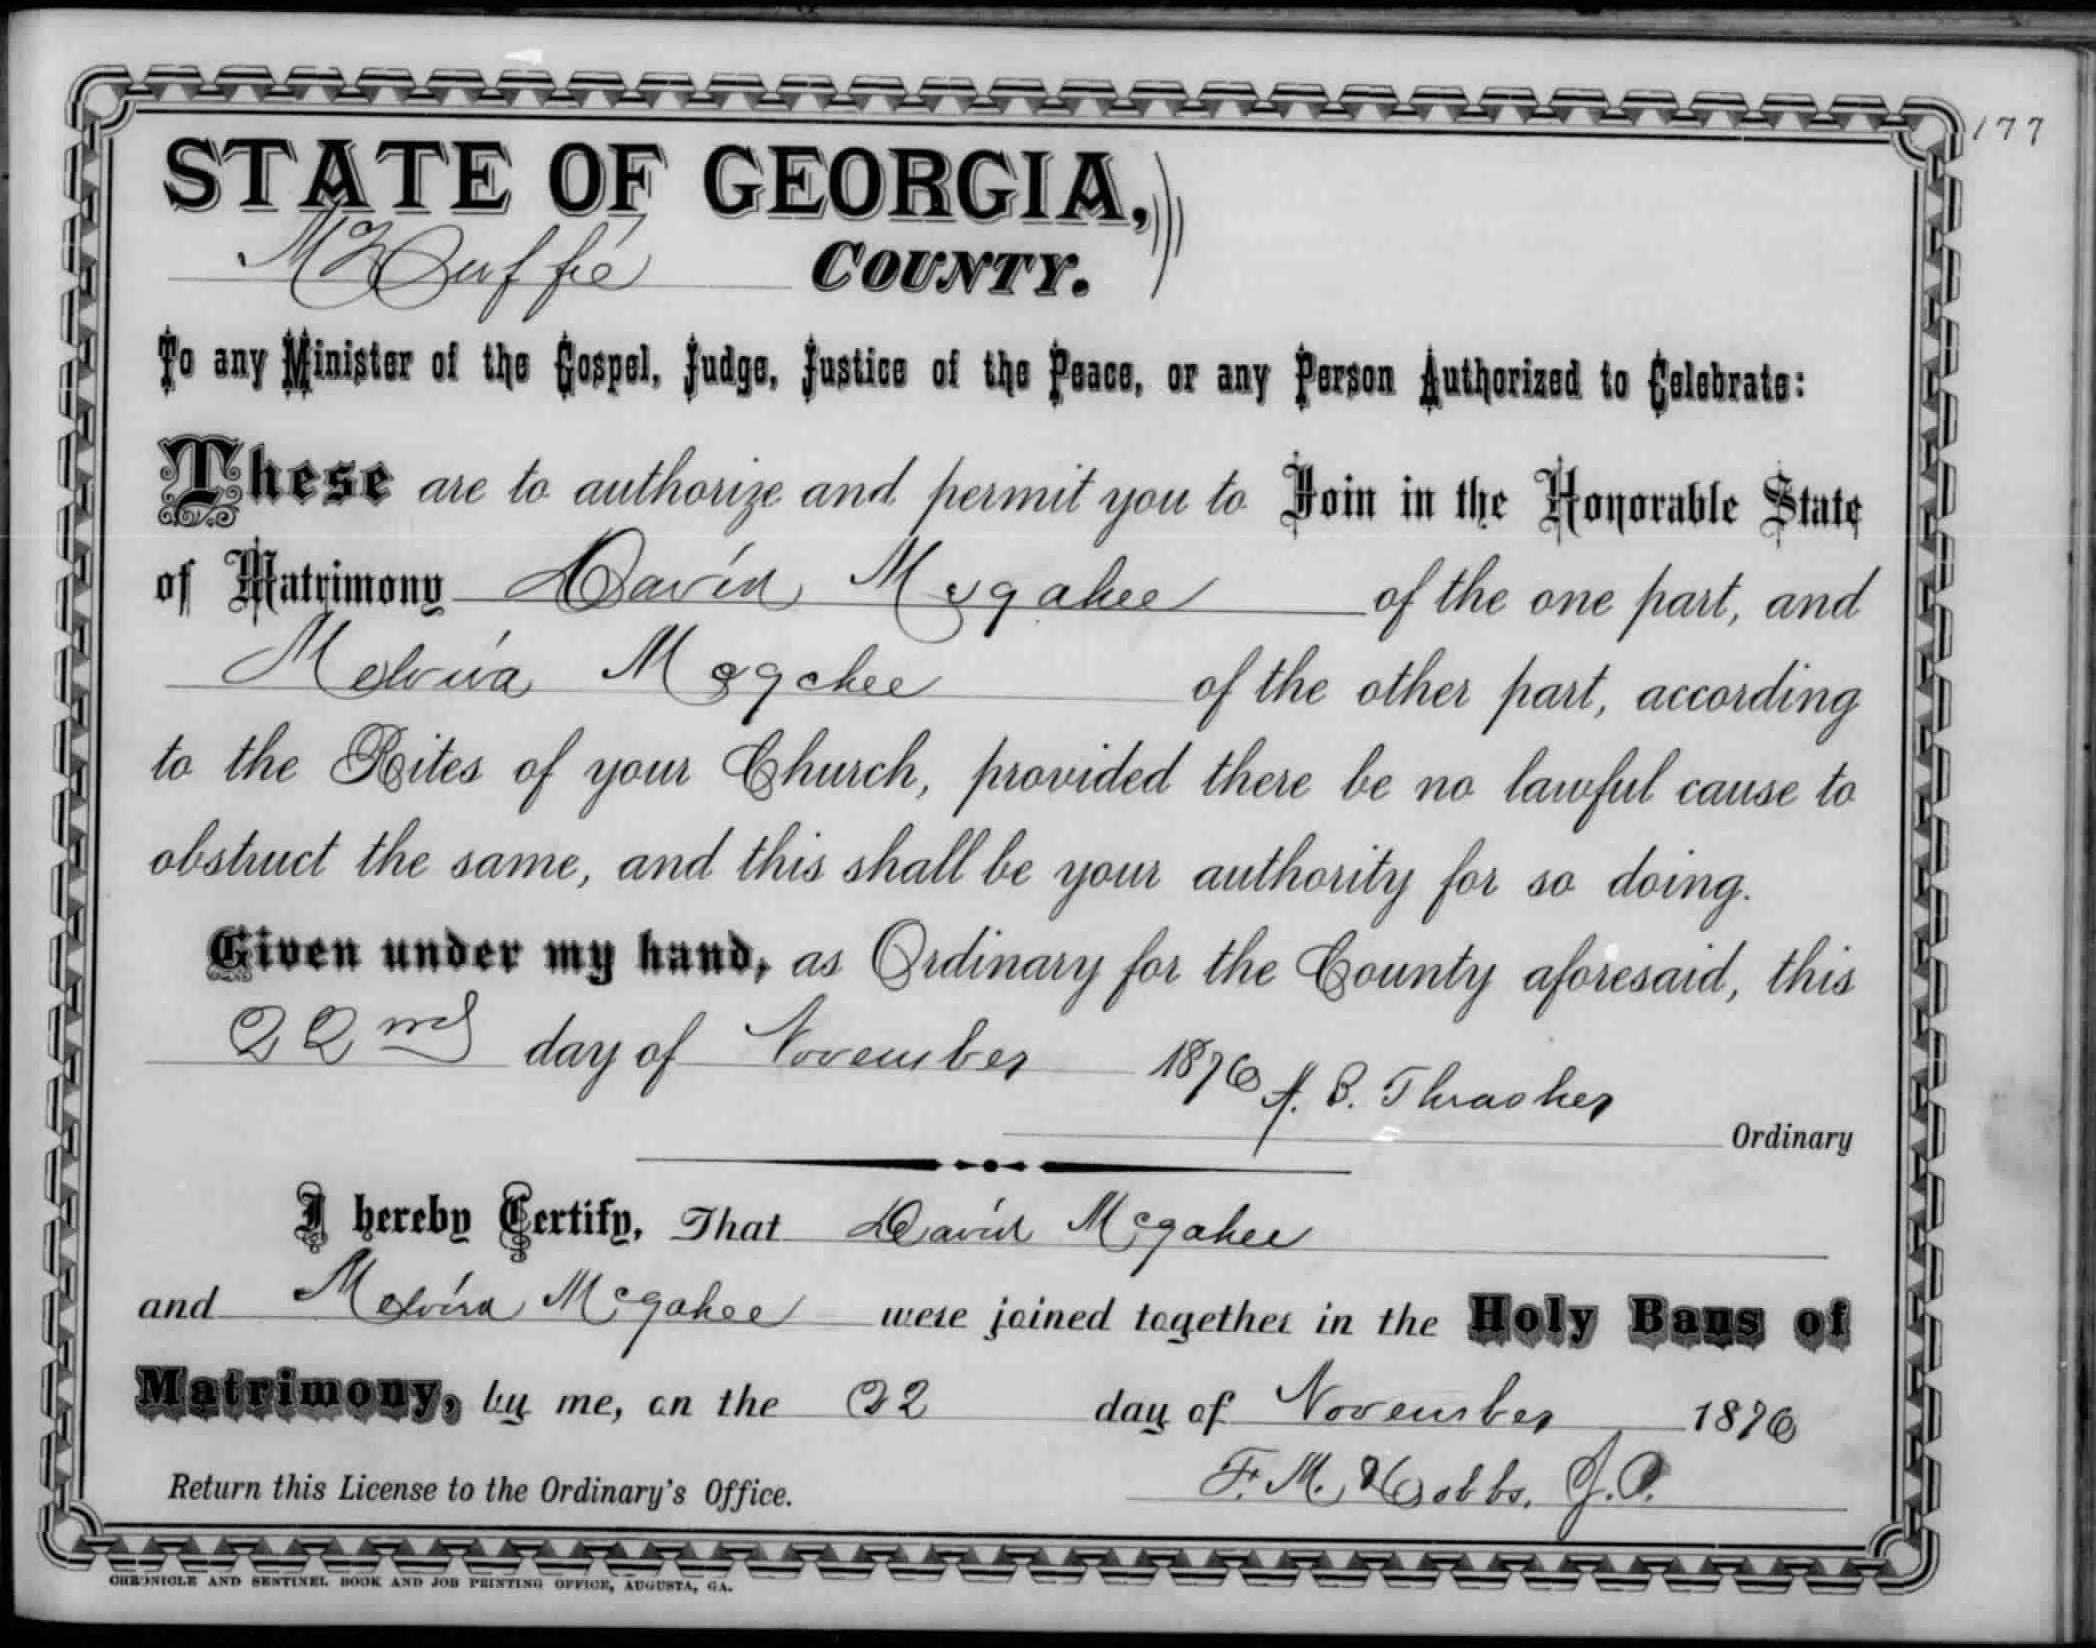 177
STATE OF GEORGIA,
McDuffie COUNTY.
To any Minister of the Gospel, Judge, Justice of the Peace, or any Person Authorized to Celebrate:
These are to authorize and permit you to Join in the Honorable State
of Matrimony David Mcgahee of the one part, and
Melvina Mcgahee of the other part, according
to the Rites of your Church, provided there be no lawful cause to
obstruct the same, and this shall be your authority for so doing.
Given under my hand, as Ordinary for the County aforesaid, this
22nd day of November 1876 A. B. Thrasher
Ordinary
I hereby Certify, That David Mcgahee
and Melvina Mcgahee were joined together in the Holy Bans of
Matrimony, by me, on the 22 day of November 1876
Return this License to the Ordinary's Office. F. M. Hobbs, J.P.
CHRONICLE AND SENTINEL BOOK AND JOB PRINTING OFFICE, AUGUSTA, GA.